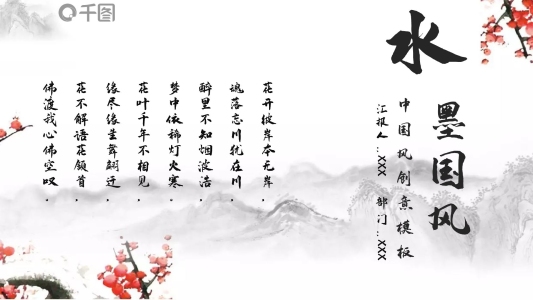 千图
水
墨国风
中国风创意模板
汇报人:XXX 部门:XXX
花开彼岸本无岸.
魂落忘川犹在川.
醉里不知烟波浩.
梦中依稀灯火寒.
花叶千年不相见.
缘尽缘生舞翩迁.
花不解语花颔首.
佛渡我心佛空叹.